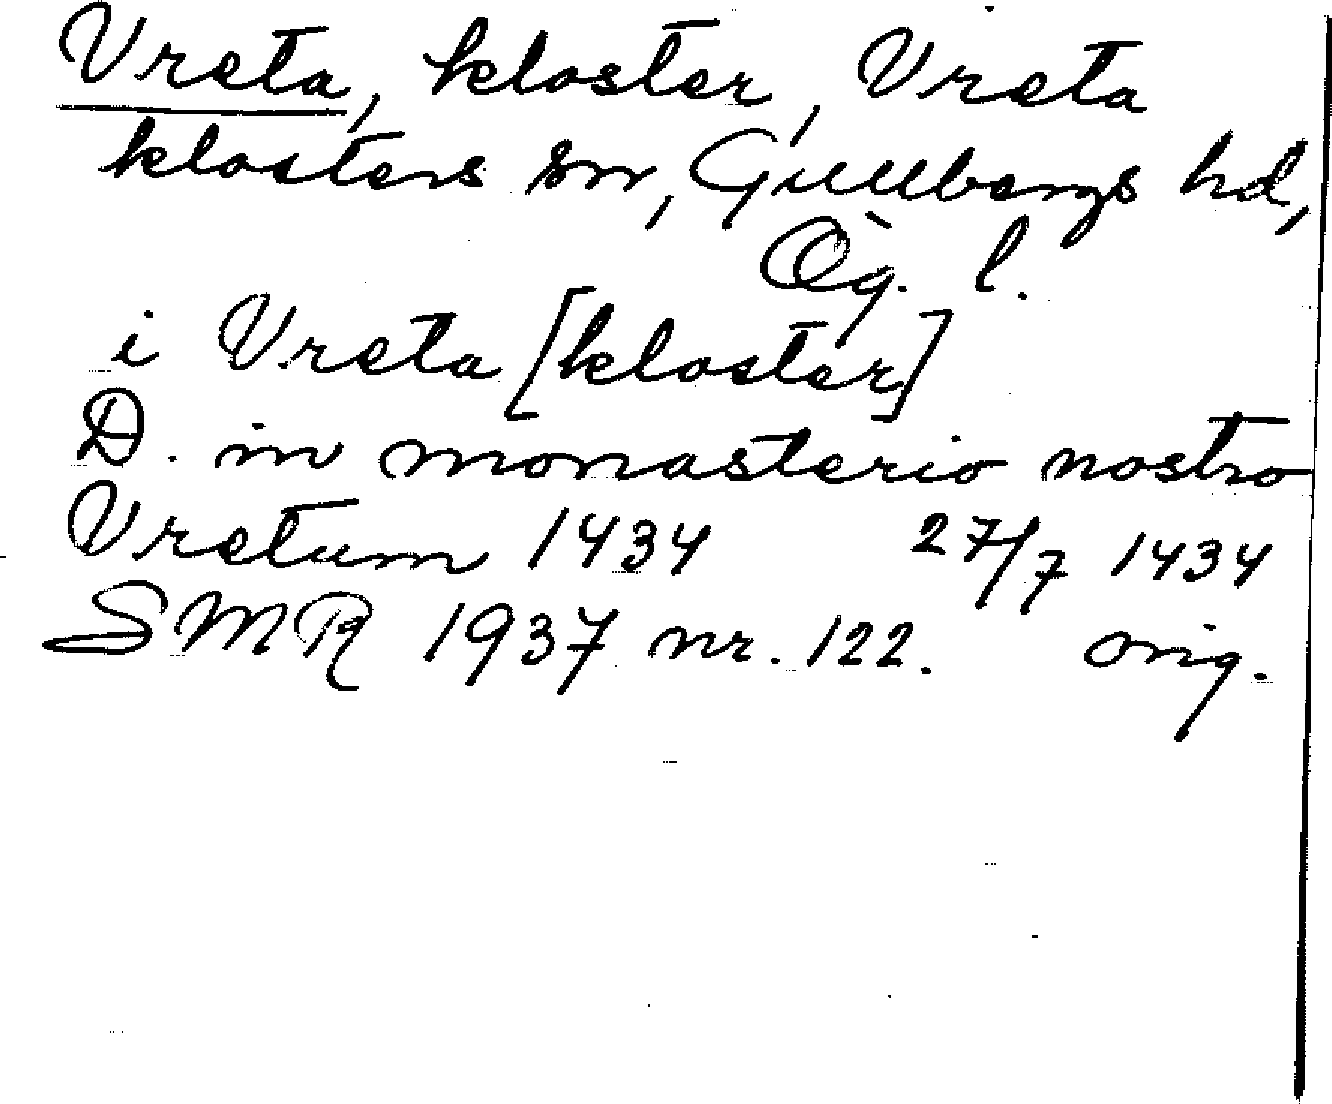 Vreta, kloster, Vreta
klosters sn, Gullbergs hd,
Ög. l.
i Vreta [kloster]
D. in monasterio nostro
Vretum 1434 27/7 1434
SMR 1937 nr. 122. orig.